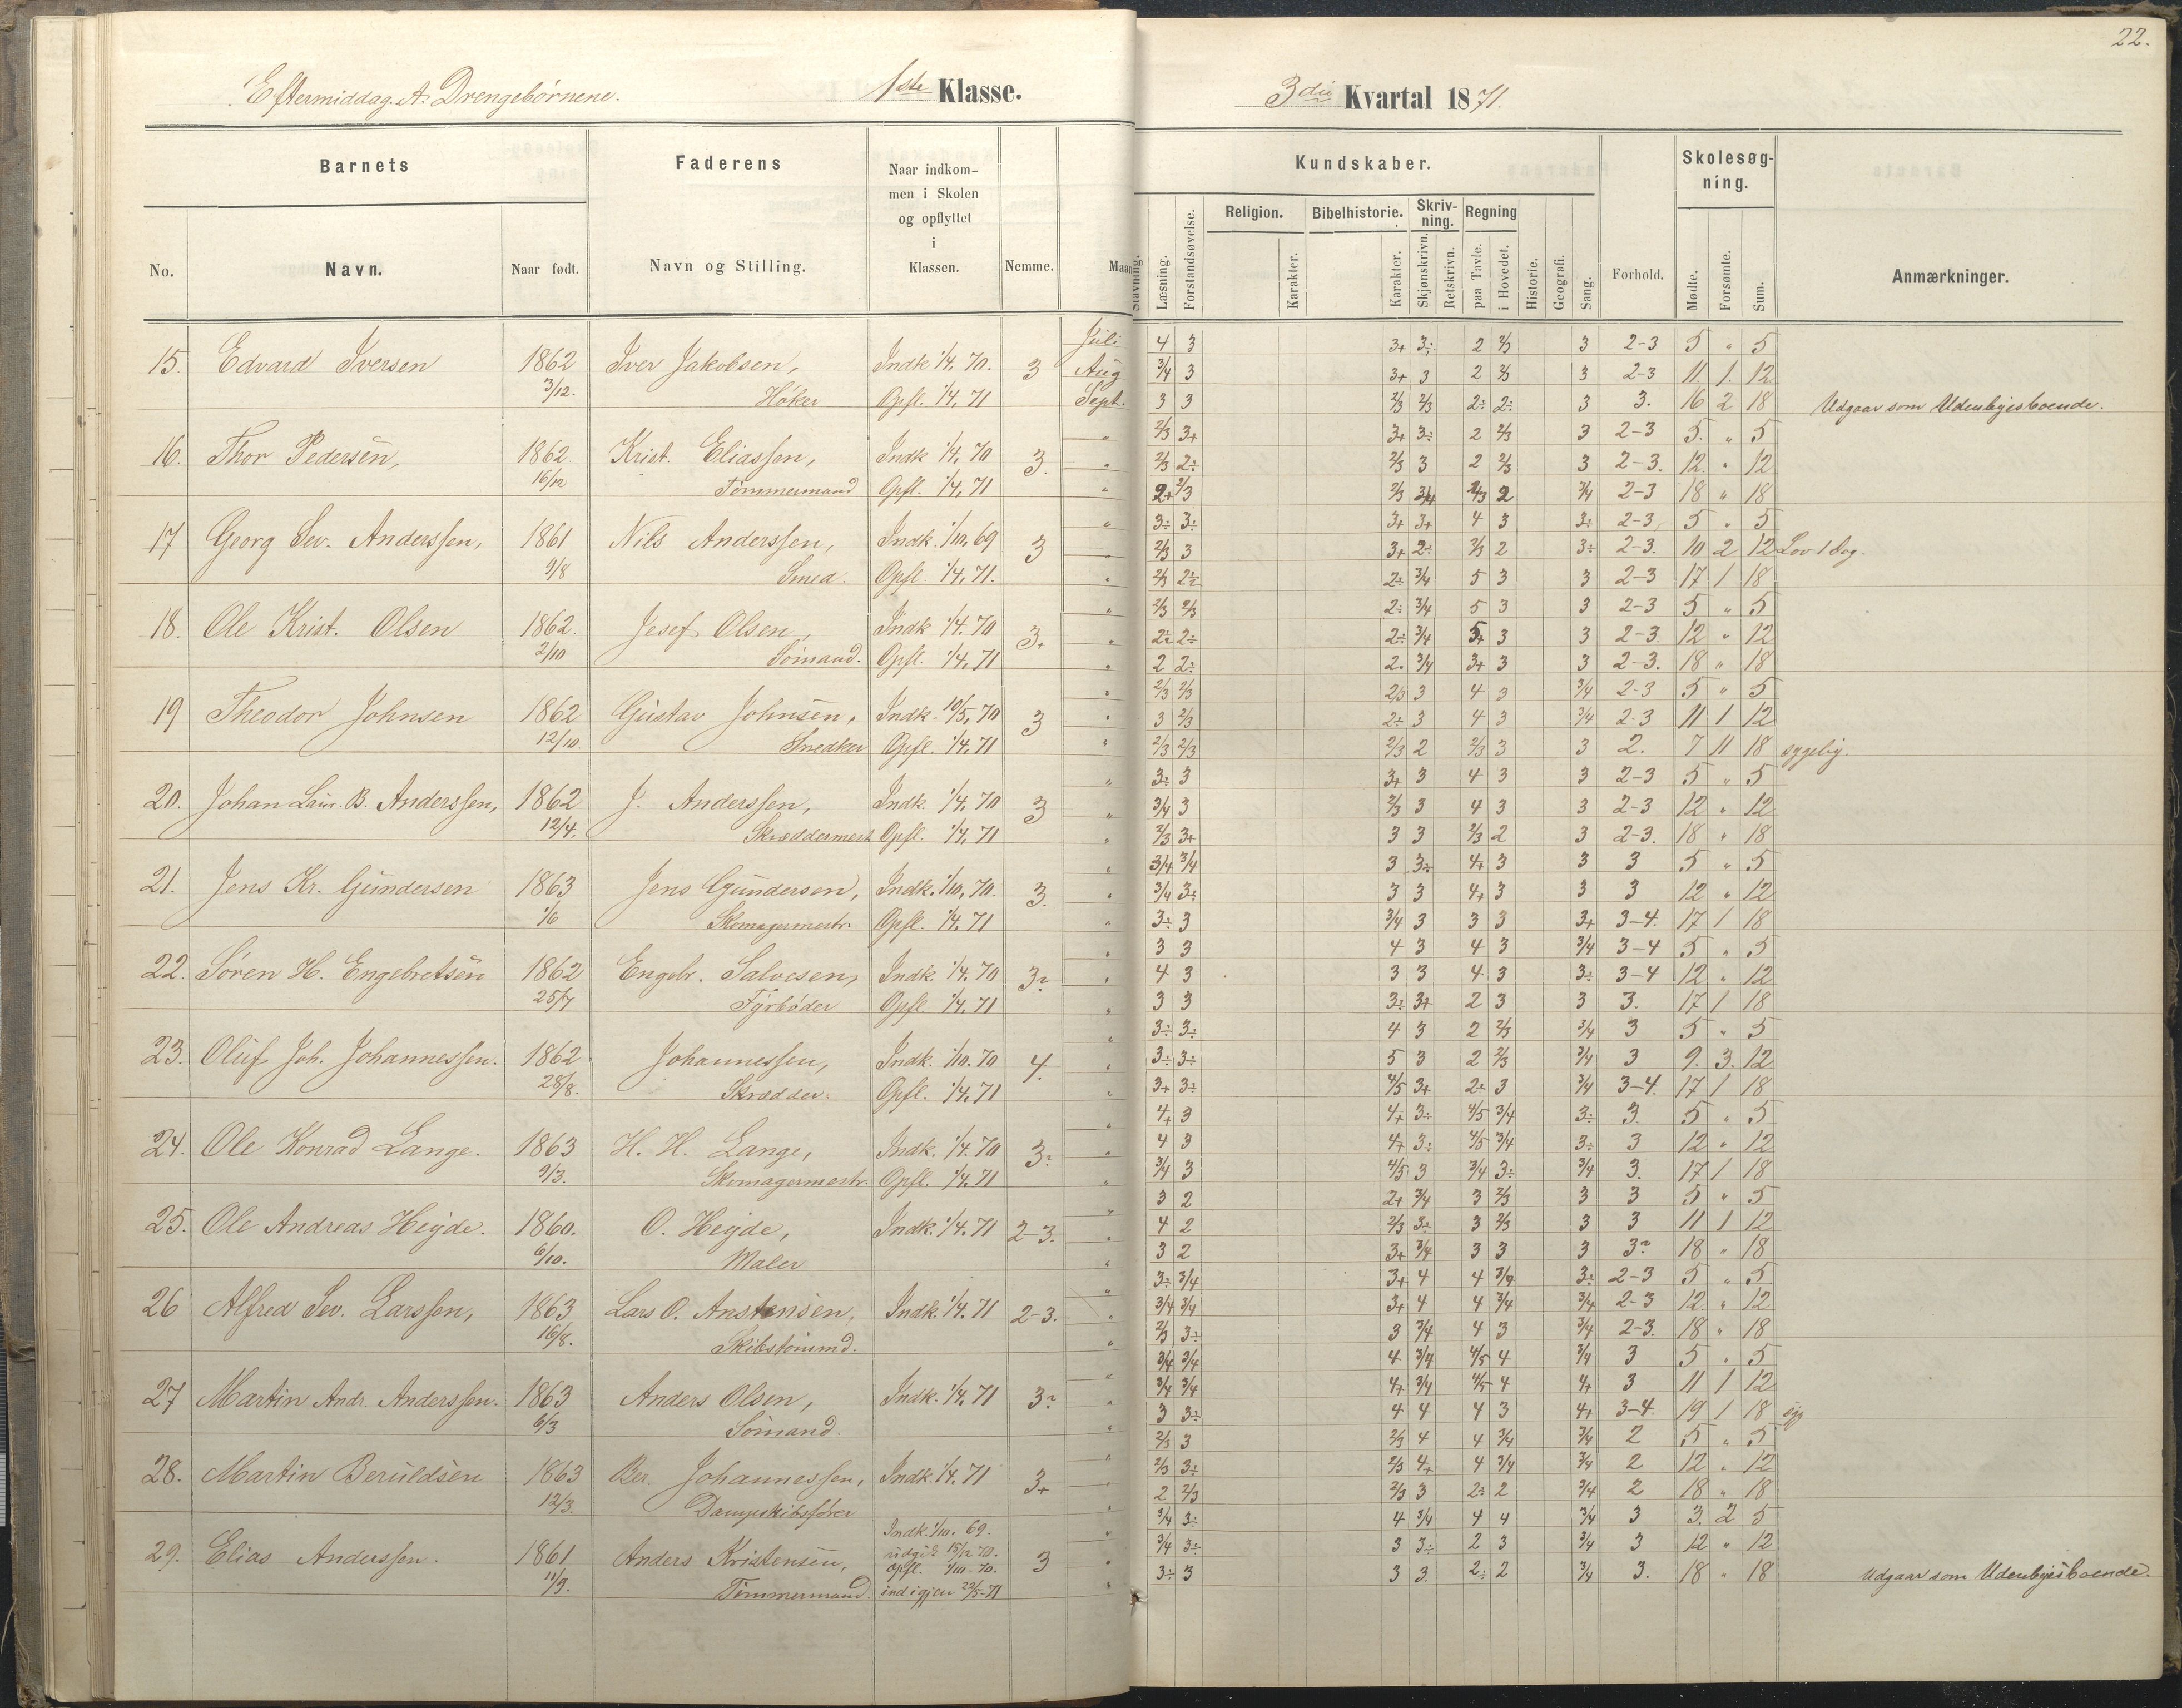 22.
Eftermiddag. A. Drengebørnene. 1ste Klasse. 3die Kvartal 1871.
Barnets Faderens Naar indkommen i Skolen og opflyttet i Klassen. Nemme. Kundskaber. Skolesøgning.
Stavning. Læsning. Forstandsøvelse. Religion. Bibelhistorie. Skrivning. Regning
No. Navn. Naar født. Navn og Stilling. Karakter. Karakter. Skjønskrivn. Retskrivn. paa Tavle. i Hovedet. Historie. Geografi. Sang. Forhold. Mødte. Forsømte. Sum. Anmærkninger.
Juli 4 3 3+ 3÷ 2 2/3 3 2-3 5 " 5
15. Edvard Iversen 1862 Iver Jakobsen, Indk 1/4. 70. 3 Aug 3/4 3 3+ 3 2 2/3 3 2-3 11. 1. 12
3/12. Høker Opfl. 1/4. 71 Sept. 3 3 2/3 2/3 2÷ 2÷ 3 3. 16 2 18 Udgaar som Udenbyesboende.
" 2/3 3+ 3+ 3÷ 2 2/3 3 2-3 5. " 5
16. Thor Pedersen, 1862. Krist. Eliassen, Indk 1/4 70 3. " 2/3 2÷ 2/3 3 2 2/3 3 2-3. 12. " 12
16/12 Tømmermand Opfl. 1/4. 71 " 2+ 2/3 2/3 3/4 2/3 2 3/4 2-3 18 " 18
" 3÷ 3÷ 3+ 3+ 4 3 3+ 2-3 5 " 5
17 Georg Sev. Anderssen, 1861 Nils Anderssen, Indk. 1/10. 69 3 " 2/3 3 3+ 2÷ 2/3 2 3÷ 2-3. 10 2 12 Lov 1 Dag.
9/8 Smed. Opfl. 1/4. 71. " 2/3 2÷ 2÷ 3/4 5 3 3 2-3 17 1 18
" 2/3 2/3 2÷ 3/4 5 3 3 2-3 5 " 5
18. Ole Krist. Olsen 1862. Josef Olsen, Indk 1/4. 70 3+ " 2÷ 2÷ 2÷ 3/4 5+ 3 3 2-3 12 " 12
2/10 Sømand. Opfl. 1/4. 71 " 2 2÷ 2. 3/4 3+ 3 3 2-3. 18 " 18
" 2/3 2/3 2/3 3 4 3 3/4 2-3 5 " 5
19 Theodor Johnsen 1862 Gustav Johnsen, Indk. 10/5. 70 3 " 3 2/3 2÷ 3 4 3 3/4 2-3 11 1 12
12/10. Snedker Opfl. 1/4. 71 " 2/3 2/3 2/3 2 2/3 3 3 2. 7 11 18 sygelig.
" 3÷ 3 3+ 3 4 3 3 2-3 5 " 5
20. Johan Laur. B. Anderssen, 1862 J. Anderssen, Indk. 1/4. 70 3 " 3/4 3 2/3 3 4 3 3 2-3 12 " 12
12/4. Skræddermest Opfl. 1/4. 71 " 2/3 3+ 3 3 2/3 2 3 2-3. 18 " 18
" 3/4 3/4 3 3÷ 4+ 3 3 3 5 " 5
21. Jens Kr. Gundersen 1863 Jens Gundersen, Indk. 1/10. 70. 3. " 3/4 3÷ 3 3 4+ 3 3 3 12 " 12
1/6 Skomagermestr. Opfl. 1/4. 71 " 3÷ 3 3/4 3 3 3 3+ 3-4. 17 1 18
" 3 3 4 3 4 3 3/4 3-4 5 " 5
22. Søren H. Engebretsen 1862 Engebr. Salvesen, Indk. 1/4. 70 3÷ " 4 3 3 3 4 3 3÷ 3-4 12 " 12
25/7 Fyrbøder Opfl. 1/4. 71 " 3 3 3÷ 3+ 2 3 3 3. 17 1 18
" 3÷ 3÷ 4 3 2 2/3 3/4 3 5 " 5
23. Oluf Joh. Johannessen. 1862 Johannessen, Indk. 1/10. 70 4. " 3÷ 3÷ 5 3 2 2/3 3/4 3 9. 3. 12
28/8. Skrædder. Opfl. 1/4. 71 " 3+ 3÷ 4/5 3+ 2÷ 3 3/4 3-4. 17 1 18
" 4+ 3 4+ 3÷ 4/5 3/4 3÷ 3. 5 " 5
24. Ole Konrad Lange. 1863 H. H. Lange, Indk. 1/4. 70 3÷ " 4 3 4+ 3÷ 4/5 3/4 3÷ 3 12 " 12
9/3. Skomagermestr. Opfl. 1/4. 71 " 3/4 3 4/5 3 3/4 3÷ 3/4 3. 17 1 18
" 3 2 2+ 3/4 3 2/3 3 3 5 " 5
25. Ole Andreas Heyde. 1860. O. Heyde, Indk. 1/4. 71 2-3. " 4 2 2/3 3÷ 3 2/3 3 3 11 1 12
6/10. Maler " 3 2 3+ 3/4 3 3 3 3÷ 18 " 18
" 3÷ 3/4 3+ 4 4 3/4 3÷ 2-3 5 " 5
26 Alfred Sev. Larssen, 1863 Lars O. Anstensen, Indk. 1/4. 71 2-3. " 3/4 3/4 3+ 4 4 3/4 3/4 2-3 12 " 12
16/8. Skibstømmd. " 2/3 3÷ 3 3/4 4 3 3/4 2-3. 18 " 18
" 3/4 3/4 4 3/4 4/5 4 3/4 3 5 " 5
27 Martin Andr. Anderssen. 1863 Anders Olsen, Indk. 1/4. 71 3÷ " 3/4 3/4 4+ 3/4 4/5 4 4+ 3 11 1 12
6/3 Sømand. " 3 3÷ 4 4 4 3 4+ 3-4 19 1 18 syg
" 2/3 3 2/3 4 4 3/4 3/4 2 5 " 5
28. Martin Beruldsen 1863 Ber. Johannessen, Indk. 1/4. 71 3+ " 2/3 3÷ 2/3 4+ 4 3/4 3/4 2 12 " 12
12/3. Dampskibsfører " 2 2/3 2/3 3 2÷ 2 3/4 2 18 " 18
Indk. 1/10. 69. " 3/4 3÷ 4 3/4 4 4 3/4 3 3. 2 5
29. Elias Anderssen. 1861 Anders Kristensen, udgik 15/12 70. 3 " 3/4 3÷ 3 3÷ 2 3 3/4 3 12 " 12
11/9. opfl. 1/10-70. " 3÷ 3 3 3. 2÷ 2 3/4 3. 18 " 18 Udgaar som Udenbyesboende.
Tømmermand. ind igjen 22/5-71